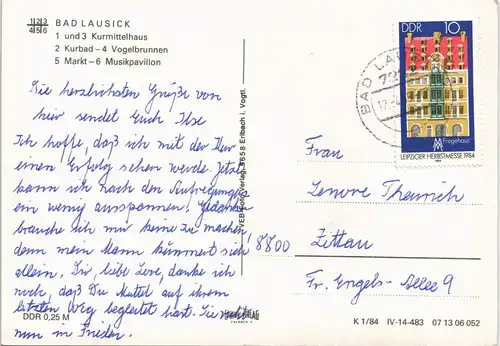 1|2|3
4|5|6
BAD LAUSICK
1 und 3 Kurmittelhaus
2 Kurbad – 4 Vogelbrunnen
5 Markt – 6 Musikpavillon
Die herzlichsten Grüße von
hier sendet Euch Ilse
Ich hoffe, daß ich mit der Kur
einen Erfolg sehen werde. Jetzt
kann ich nach den Aufregungen
ein wenig ausspannen. Gedanken
brauche ich mir keine zu machen,
denn mein Mann kümmert sich
allein. Dir, liebe Lore, danke ich
noch, daß Du Muttel auf ihrem
letzten Weg begleitet hast. Sie
nun in Frieden.
DDR 0,25 M
VEB Verlag, 9658 Erlbach i. Vogtl.
DDR 10
Fregehaus
LEIPZIGER HERBSTMESSE 1984
BAD LAU
Frau
Lenore
8800 Zittau
Fr.-Engels-Allee 9
K 1/84 IV-14-483 07 13 06 052